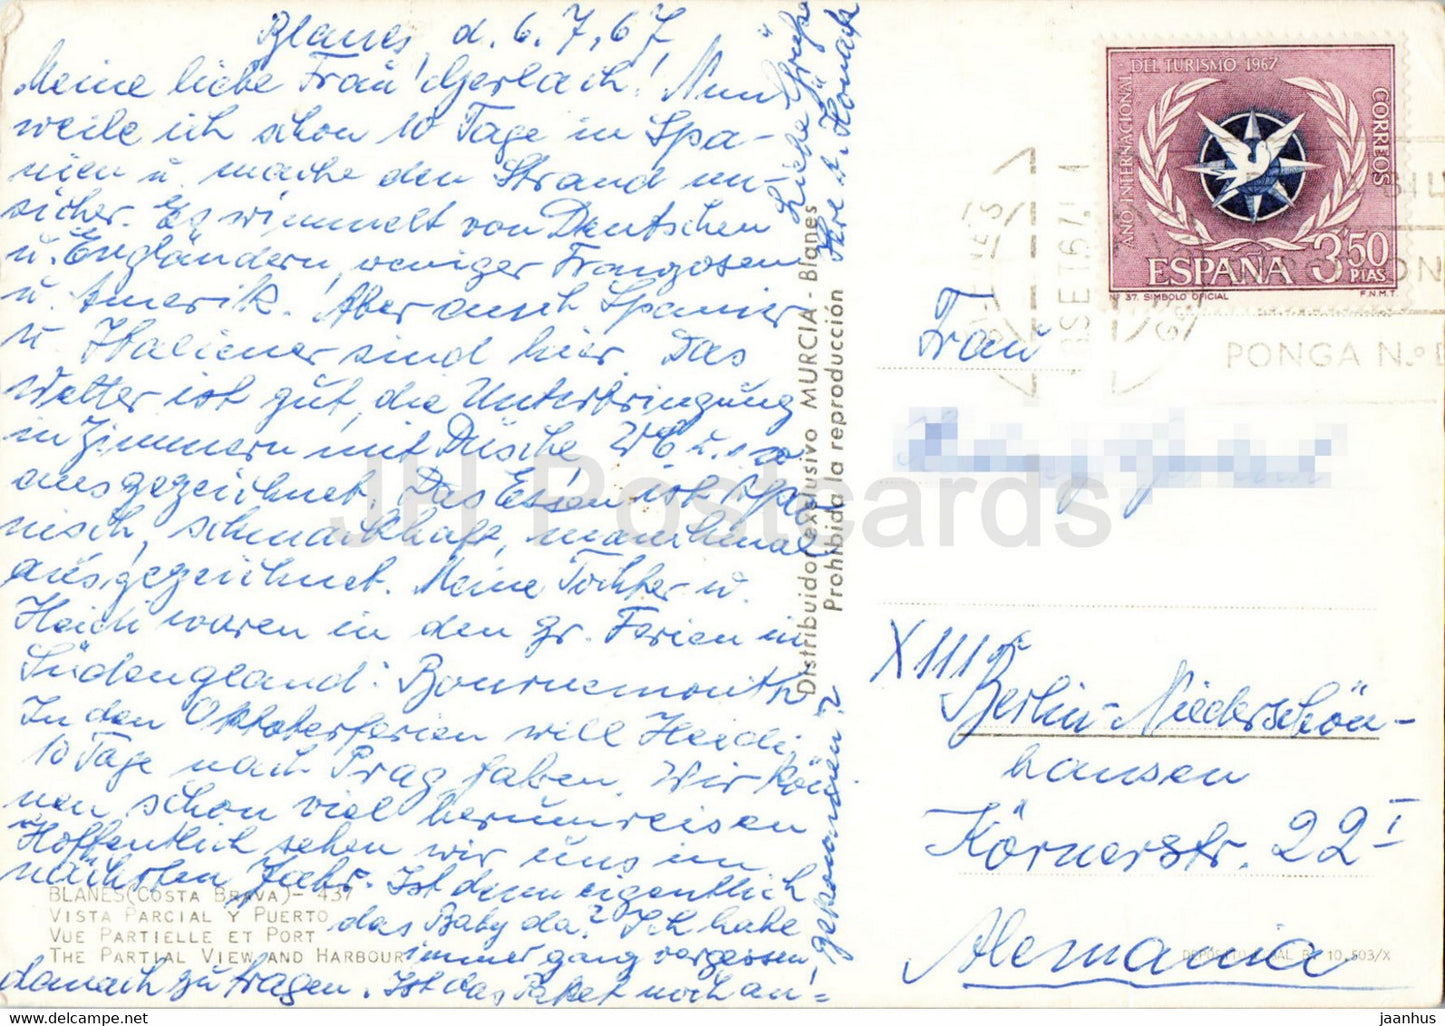 Blanes, d. 6.7.67
Meine liebe Frau Gerlach! Nun
weile ich schon 10 Tage in Spa-
nien u. mache den Strand un-
sicher. Es wimmelt von Deutschen
u. Engländern, weniger Franzosen
u. Amerik. Aber auch Spanier
u. Italiener sind hier. Das
Wetter ist gut, die Unterbringung
in Zimmern mit Dusche, WC u.s.w.
ausgezeichnet. Das Essen ist spa-
nisch, schmackhaft, manchmal
ausgezeichnet. Meine Tochter u.
Heidi waren in den gr. Ferien in
Südengland: Bournemouth.
In den Oktoberferien will Heidi
10 Tage nach Prag fahren. Wir kön-
nen schon viel herumreisen
Hoffentlich sehen wir uns im
nächsten Jahr. Ist denn eigentlich
das Baby da? Ich habe
immer ganz vergessen,
danach zu fragen. Ist das Paket noch an-
gekommen?
Liebe Grüße
Ihre
BLANES (COSTA BRAVA) - 437
VISTA PARCIAL Y PUERTO
VUE PARTIELLE ET PORT
THE PARTIAL VIEW AND HARBOUR
Distribuidor exclusivo MURCIA - Blanes
Prohibida la reproducción
AÑO INTERNACIONAL DEL TURISMO 1967
CORREOS
ESPAÑA 3'50 PTAS
Nº 37. SIMBOLO OFICIAL F.N.M.T.
PONGA N.º D
Frau
X 1115
Berlin-Niederschön-
hausen
Körnerstr. 22 I
Alemania
JH Postcards
www.delcampe.net
jaanhus